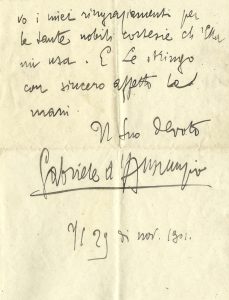 vo i miei ringraziamenti per
le tante nobili cortesie ch'Ella
mi usa. E Le stringo
con sincero affetto la
mani.
Il Suo devoto
Gabriele d'Annunzio
29 di nov. 1901.